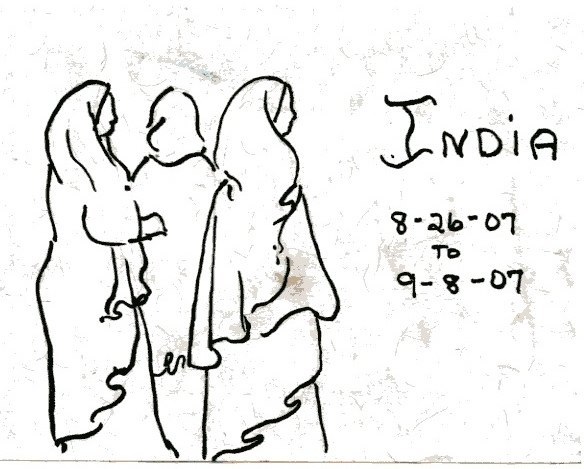 INDiA
8-26-07
TO
9-8-07